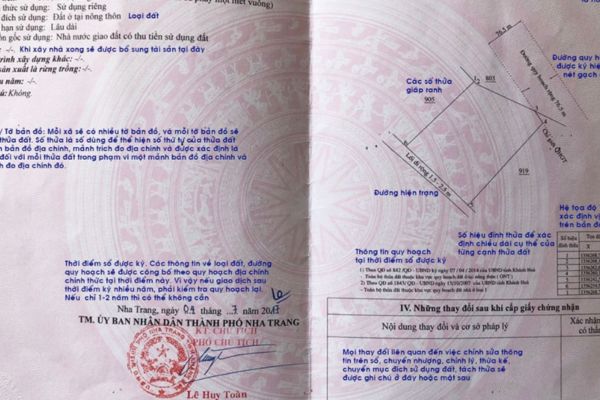 thức sử dụng: Sử dụng riêng
đích sử dụng: Đất ở tại nông thôn
Loại đất
hạn sử dụng: Lâu dài
ồn gốc sử dụng: Nhà nước giao đất có thu tiền sử dụng đất
-/-. Khi xây nhà xong sẽ được bổ sung tài sản tại đây
trình xây dựng khác: -/-.
sản xuất là rừng trồng: -/-.
u năm: -/-.
hú: Không.
Tờ bản đồ: Mỗi xã sẽ có nhiều tờ bản đồ, và mỗi tờ bản đồ sẽ
thửa đất. Số thửa là số dùng để thể hiện số thứ tự của thửa đất
bản đồ địa chính, mảnh trích đo địa chính và được xác định là
đối với mỗi thửa đất trong phạm vi một mảnh bản đồ địa chính và
h đo địa chính đó.
Thời điểm sổ được ký. Các thông về loại đất, đường
quy hoạch sẽ được công bố theo quy hoạch địa chính
chính thức tại thời điểm này. Vì vậy nếu giao dịch sau
thời điểm ký nhiều năm, phải kiểm tra quy hoạch lại.
Nếu chỉ 1-2 năm thì có thể không cần
Nha Trang, ngày
TM. ỦY BAN NHÂN DÂN THÀNH PHỐ NHA TRANG
KT. CHỦ TỊCH
PHÓ CHỦ TỊCH
Lê Huy Toàn
76,5 m
Đường quy hoạch rộng 76,5 m
Đường quy h
được ký hiệ
nét gạch
Các số thửa
giáp ranh
905
803
2
919
Lối đi rộng 1.5 - 2.5 m
Đường hiện trạng
Hệ tọa độ
xác định vị
trên bản đ
Số hiệu đỉnh thửa để xác
định chiều dài cụ thể của
từng cạnh thửa đất
Số hiệu
đỉnh thửa
X
Thông tin quy hoạch
tại thời điểm sổ được ký
IV. Những thay đổi sau khi cấp giấy chứng nhận
Nội dung thay đổi và cơ sở pháp lý
Xác nhậ
có thẩ
Mọi thay đổi liên quan đến việc chỉnh sửa thông
tin trên sổ, chuyển nhượng, chỉnh lý, thừa kế,
chuyển mục đích sử dụng đất, tách thửa sẽ
được ghi chú ở đây hoặc mặt sau